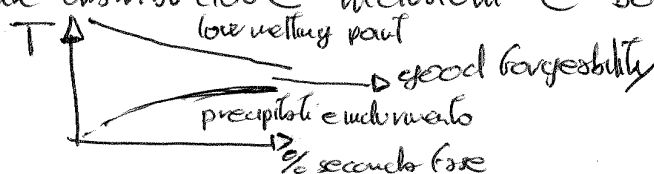 T
low melting point
good forgeability
precipitati e indurimento
% seconda fase